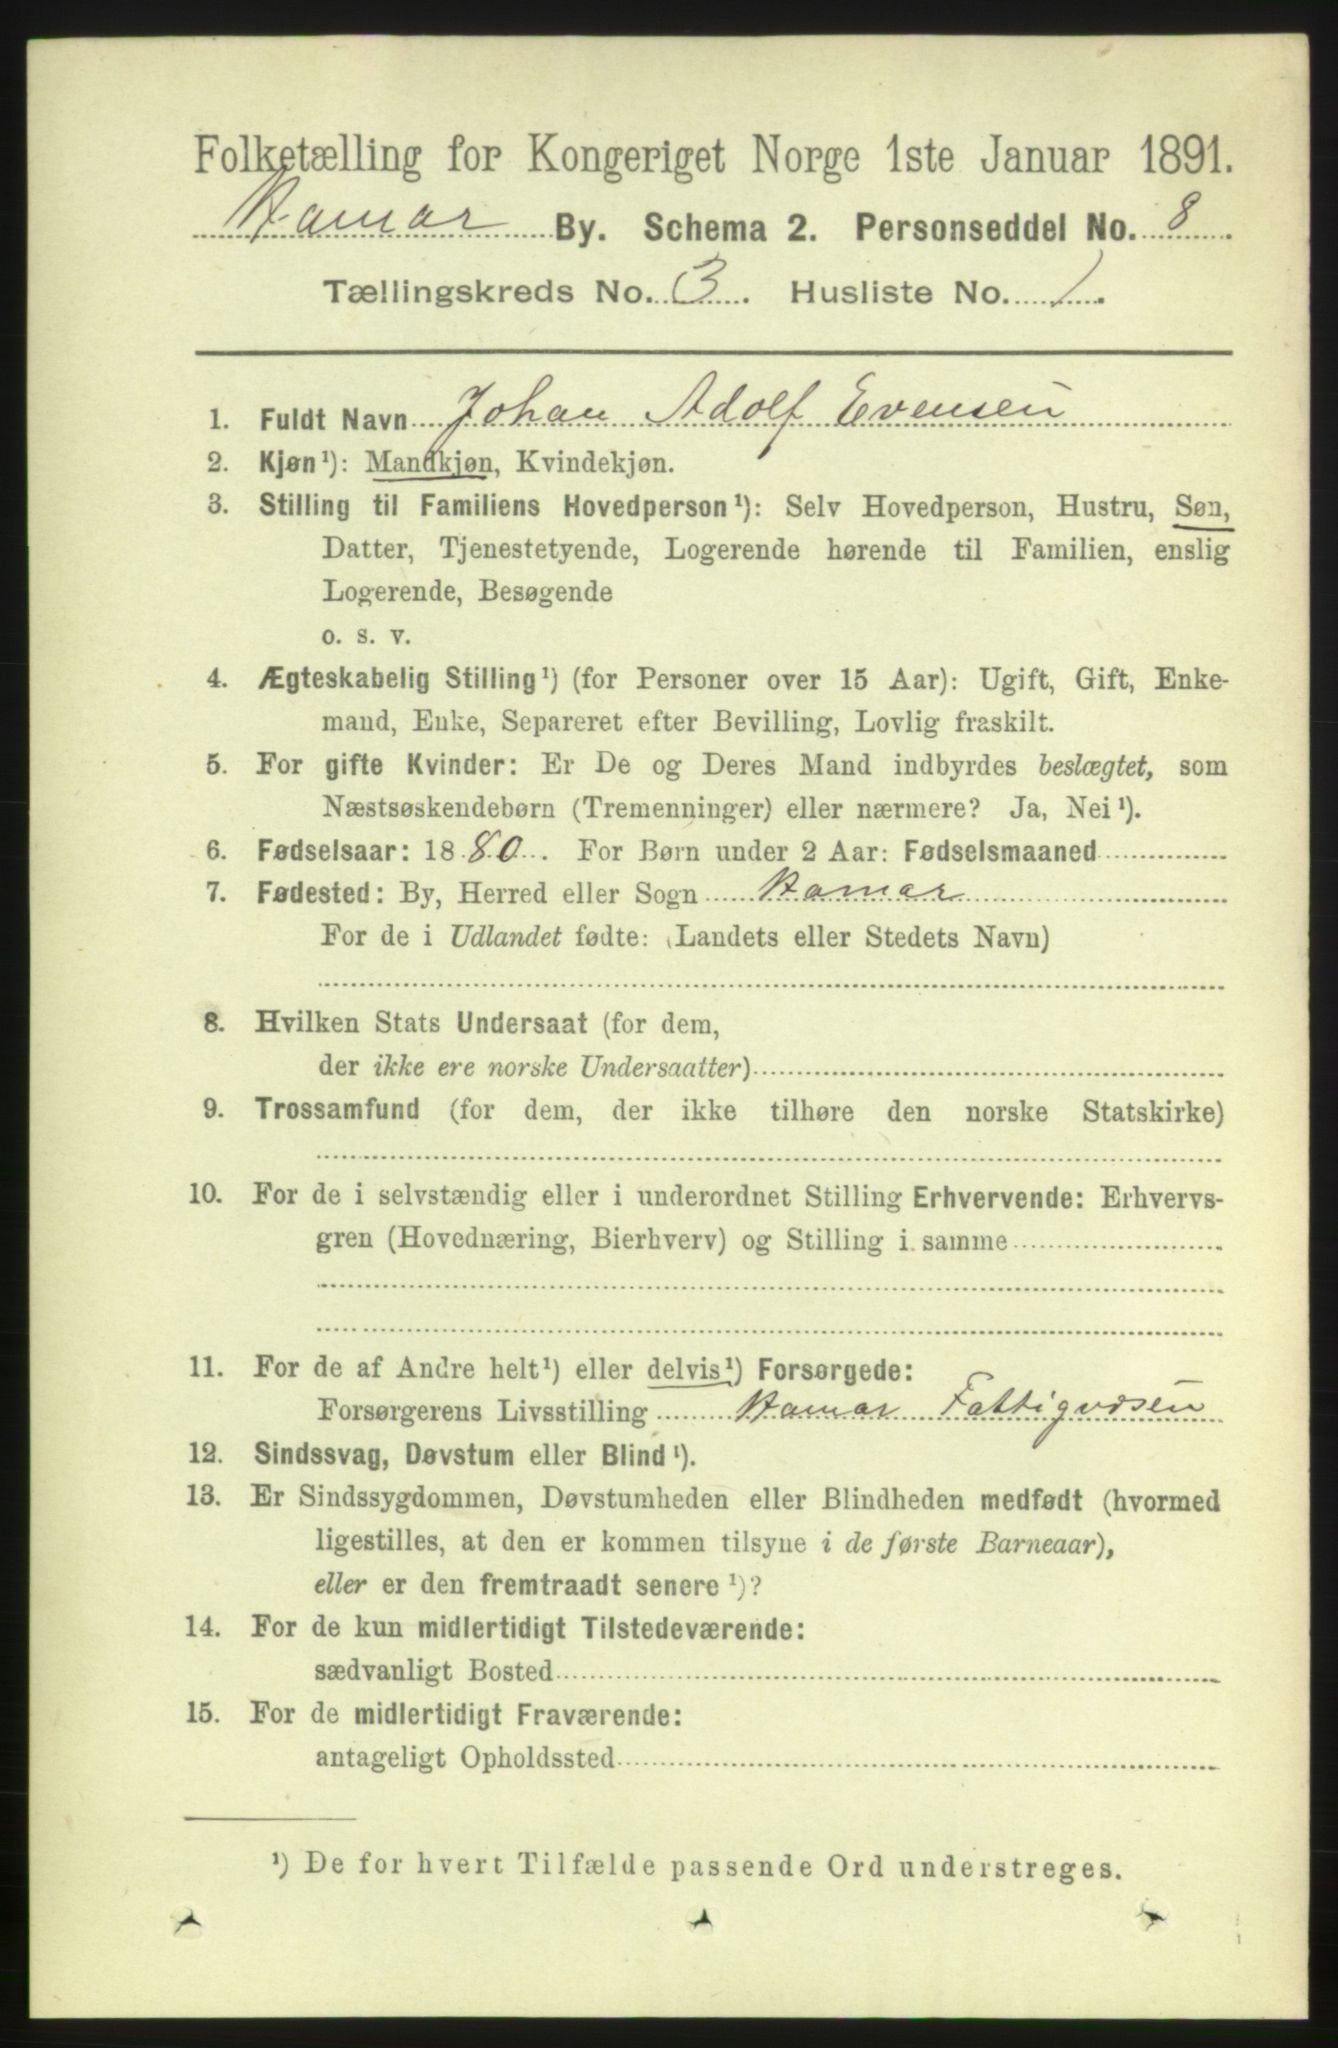 Folketælling for Kongeriget Norge 1ste Januar 1891.
Hamar By. Schema 2. Personseddel No. 8.
Tællingskreds No. 3. Husliste No. 1.
1. Fuldt Navn Johan Adolf Evensen
2. Kjøn¹): Mandkjøn, Kvindekjøn.
3. Stilling til Familiens Hovedperson¹): Selv Hovedperson, Hustru, Søn,
Datter, Tjenestetyende, Logerende hørende til Familien, enslig
Logerende, Besøgende
o. s. v.
4. Ægteskabelig Stilling¹) (for Personer over 15 Aar): Ugift, Gift, Enke-
mand, Enke, Separeret efter Bevilling, Lovlig fraskilt.
5. For gifte Kvinder: Er De og Deres Mand indbyrdes beslægtet, som
Næstsøskendebørn (Tremenninger) eller nærmere? Ja, Nei¹).
6. Fødselsaar: 1880. For Børn under 2 Aar: Fødselsmaaned
7. Fødested: By, Herred eller Sogn Hamar
For de i Udlandet fødte: (Landets eller Stedets Navn)
8. Hvilken Stats Undersaat (for dem,
der ikke ere norske Undersaatter)
9. Trossamfund (for dem, der ikke tilhøre den norske Statskirke)
10. For de i selvstændig eller i underordnet Stilling Erhvervende: Erhvervs-
gren (Hovednæring, Bierhverv) og Stilling i samme
11. For de af Andre helt¹) eller delvis¹) Forsørgede:
Forsørgerens Livsstilling Hamar Fattigvæsen
12. Sindssvag, Døvstum eller Blind¹).
13. Er Sindssygdommen, Døvstumheden eller Blindheden medfødt (hvormed
ligestilles, at den er kommen tilsyne i de første Barneaar),
eller er den fremtraadt senere¹)?
14. For de kun midlertidigt Tilstedeværende:
sædvanligt Bosted
15. For de midlertidigt Fraværende:
antageligt Opholdssted
¹) De for hvert Tilfælde passende Ord understreges.